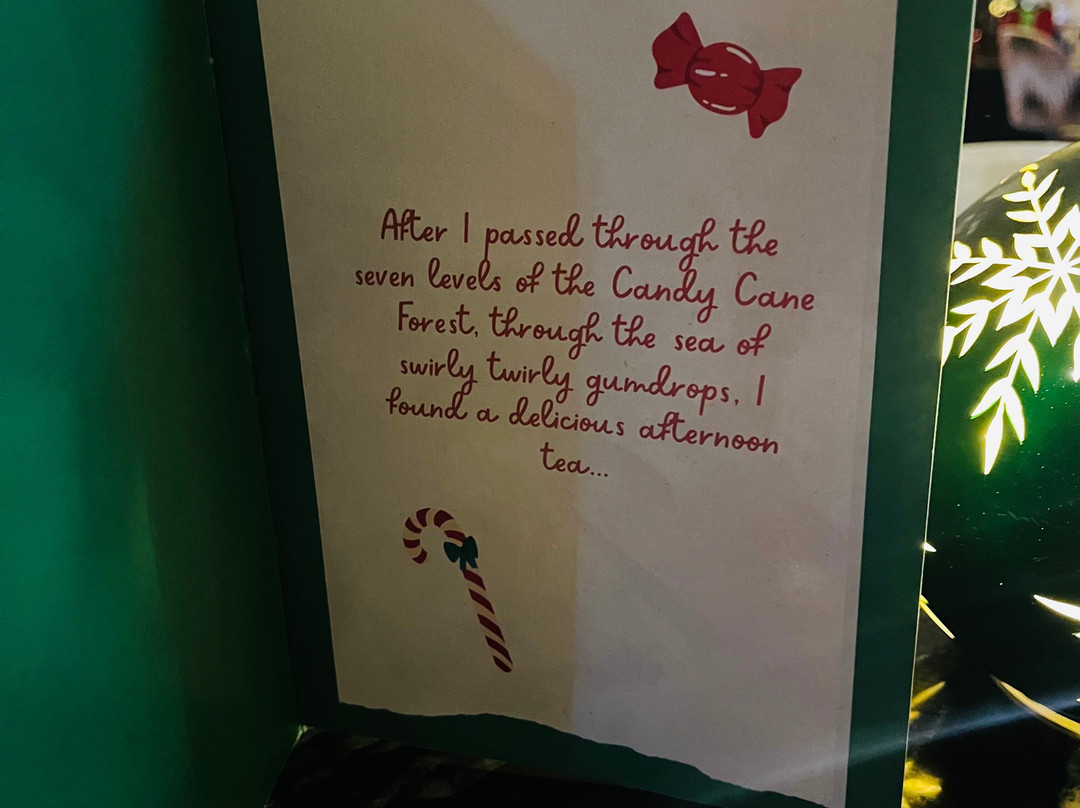 After I passed through the
seven levels of the Candy Cane
Forest, through the sea of
swirly twirly gumdrops, I
found a delicious afternoon
tea...